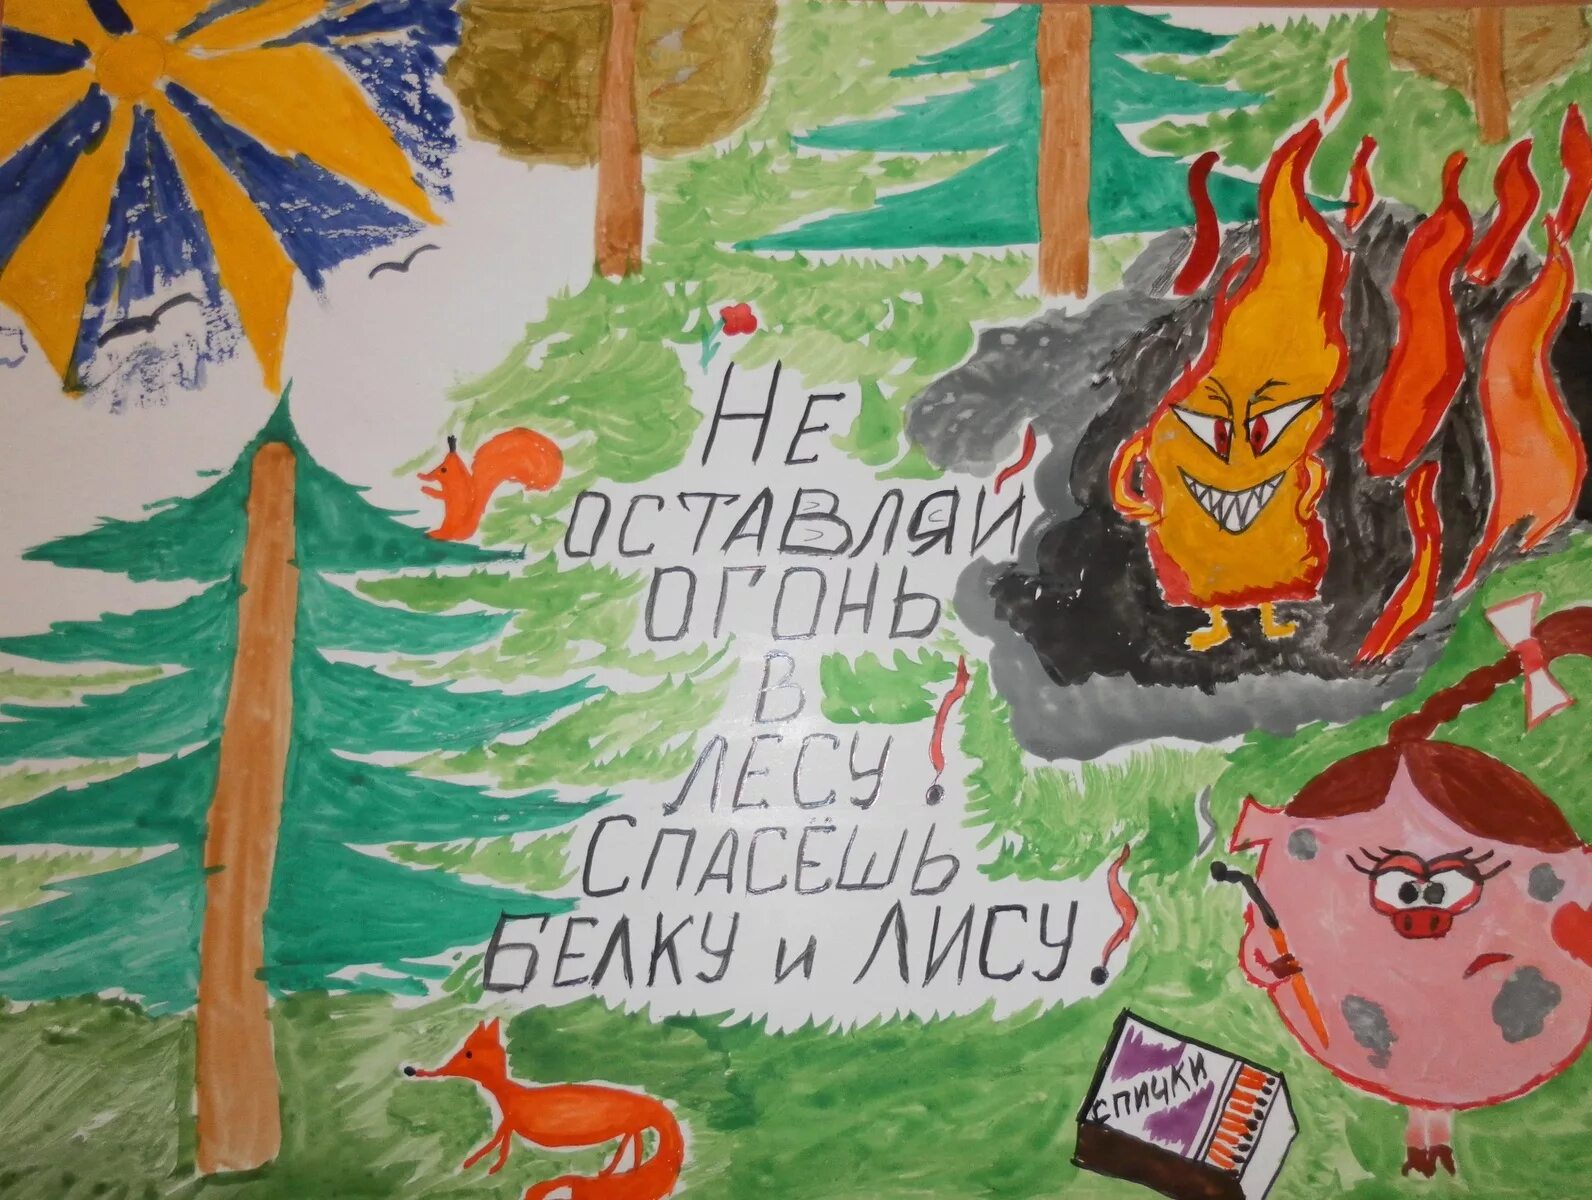 Не
оставляй
огонь
в
лесу!
Спасёшь
белку и лису!
спички